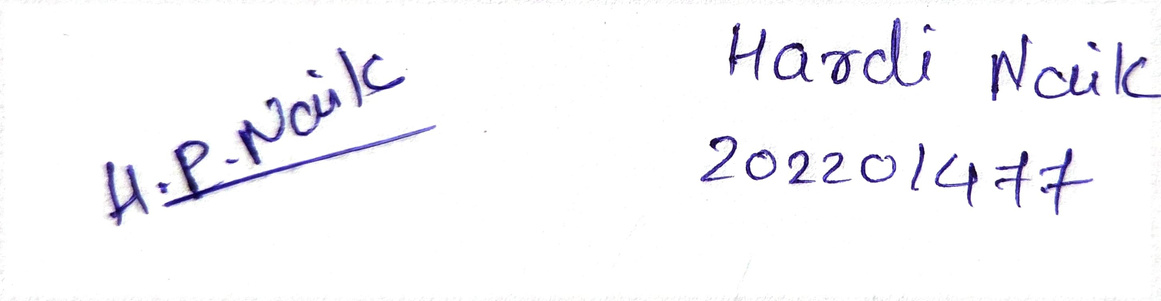 H.P.Naik
Hardi Naik
202201477